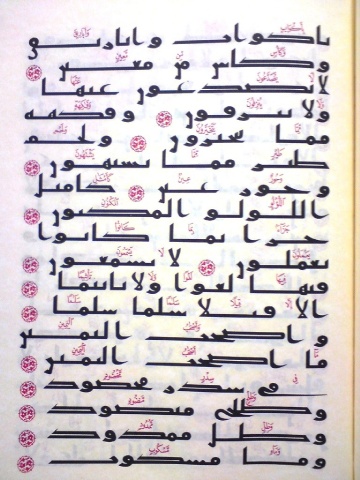 باكواب واباريق
وكاس من معين
لا يصدعون عنها
ولا ينزفون وفكهه
مما يتخيرون ولحم
طير مما يشتهون
وحور عين كامثل
اللولو المكنون
جزا بما كانوا
يعملون لا يسمعون
فيها لغوا ولا تاثيما
الا قيلا سلما سلما
واصحب اليمين
ما اصحب اليمين
في سدر مخضود
وطلح منضود
وظل ممدود
وما مسكوب